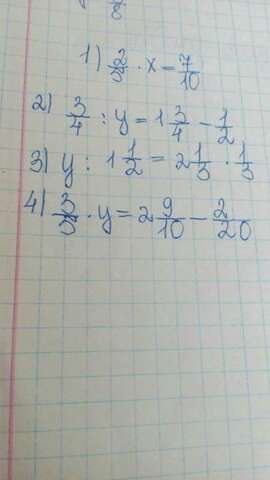 8
1) 2/5 · x = 7/10
2) 3/4 : y = 1 3/4 - 1/2
3) y : 1 1/2 = 2 1/3 · 1/3
4) 3/5 · y = 2 9/10 - 2/20